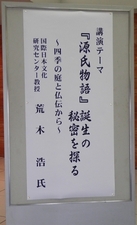 講演テーマ
『源氏物語』誕生の
秘密を探る
～四季の庭と仏伝から～
国際日本文化
研究センター教授
荒木 浩 氏